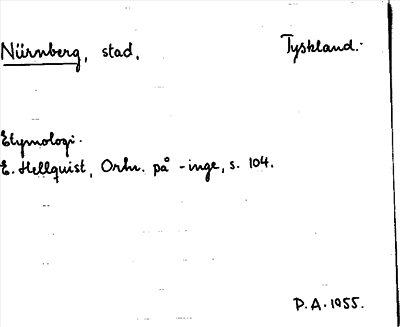 Nürnberg, stad. Tyskland.
Etymologi.
E. Hellquist, Ortn. på -inge, s. 104.
P.A. 1955.